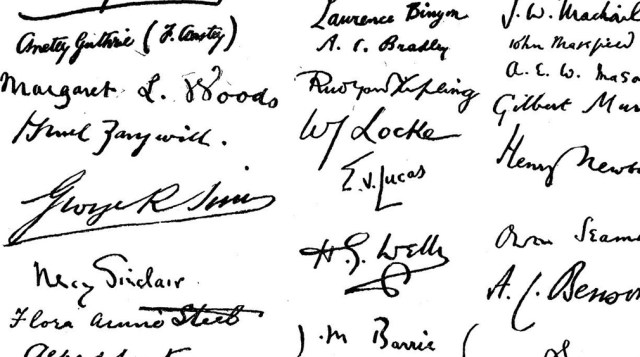 Anstey Guthrie (F. Anstey)
Margaret L. Woods
Israel Zangwill.
George R Sims
May Sinclair.
Flora Annie Steel
Laurence Binyon
A. C. Bradley
Rudyard Kipling
W J Locke
E. V. Lucas
H. G. Wells
J. M Barrie
J. W. Mackail
John Masefield
A. E. W. Maso
Gilbert Mur
Henry Newbo
Owen Seama
A. C. Benson